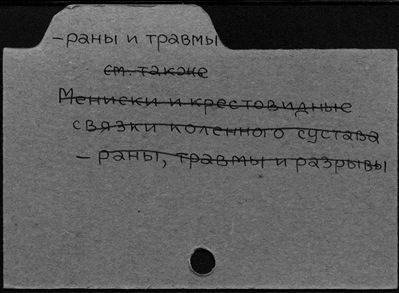 -раны и травмы
см. также
Мениски и крестовидные
связки коленного сустава
- раны, травмы и разрывы